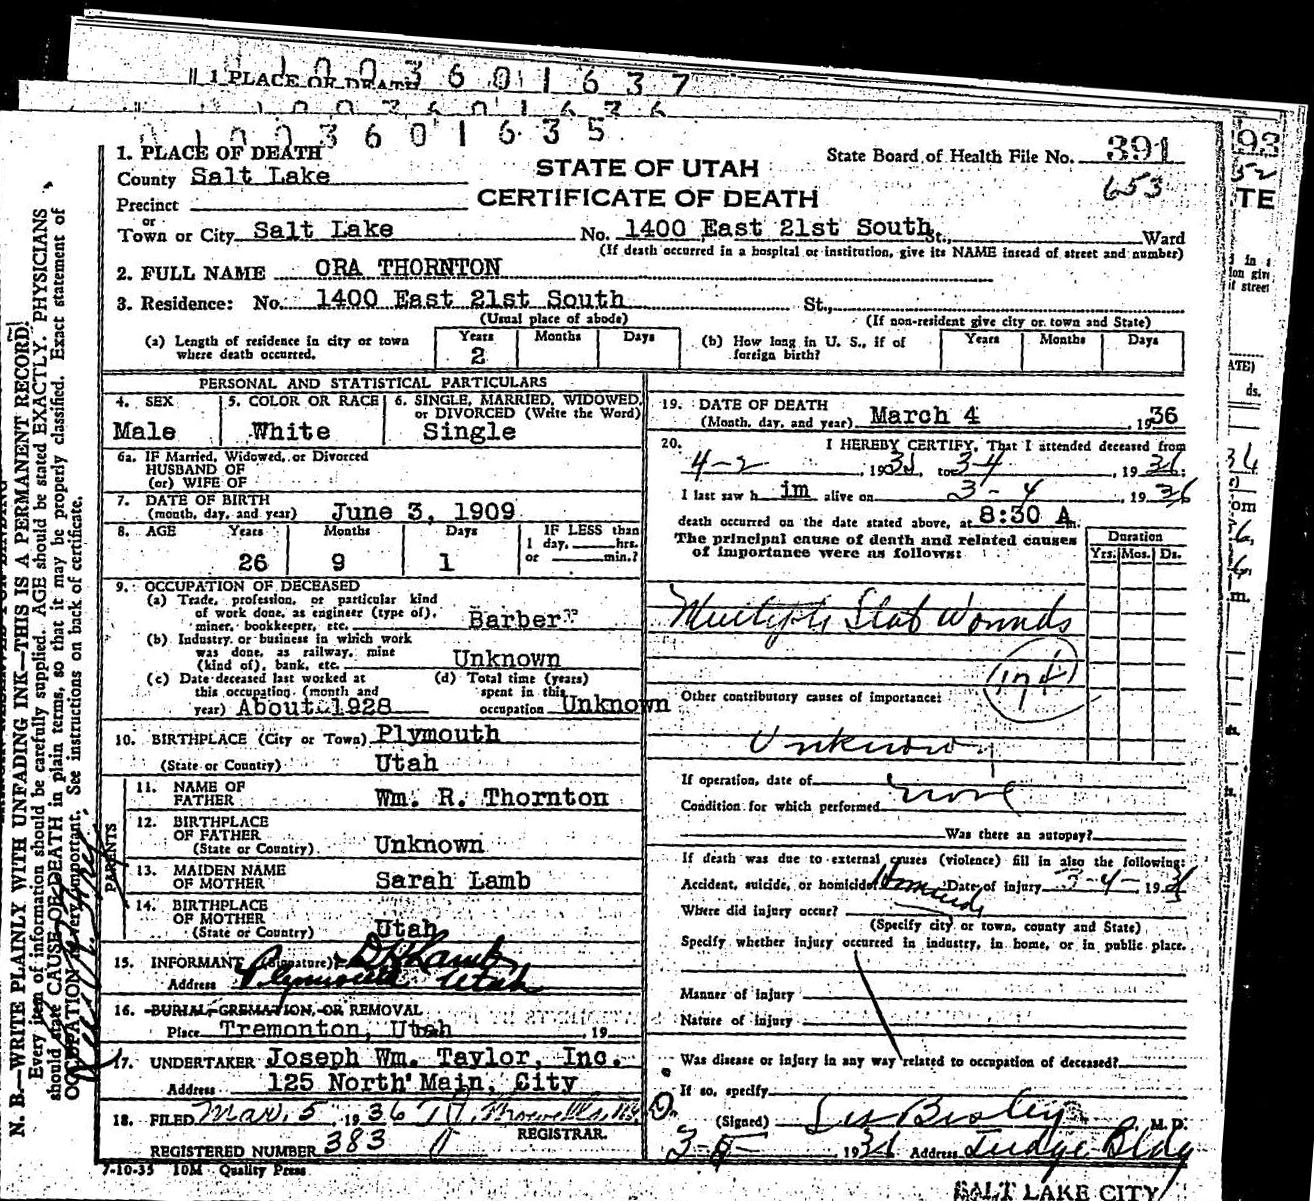 1 PLACE OF DEATH
0 1 0 0 3 6 0 1 6 3 7
0 1 0 0 3 6 0 1 6 3 6
0 1 0 0 3 6 0 1 6 3 5
1. PLACE OF DEATH
County Salt Lake
Precinct
or
Town or City Salt Lake
STATE OF UTAH
CERTIFICATE OF DEATH
State Board of Health File No. 391
653
No. 1400 East 21st South St., Ward
(If death occurred in a hospital or institution, give its NAME insead of street and number)
2. FULL NAME ORA THORNTON
3. Residence: No. 1400 East 21st South St.,
(Usual place of abode) (If non-resident give city or town and State)
(a) Length of residence in city or town where death occurred. Years 2 Months Days
(b) How long in U. S., if of foreign birth? Years Months Days
PERSONAL AND STATISTICAL PARTICULARS
4. SEX Male
5. COLOR OR RACE White
6. SINGLE, MARRIED, WIDOWED, or DIVORCED (Write the Word) Single
6a. IF Married, Widowed, or Divorced
HUSBAND OF
(or) WIFE OF
7. DATE OF BIRTH
(month, day, and year) June 3, 1909
8. AGE Years 26 Months 9 Days 1
IF LESS than
1 day, hrs.
or min.?
9. OCCUPATION OF DECEASED
(a) Trade, profession, or particular kind
of work done, as engineer (type of),
miner, bookkeeper, etc. Barber
(b) Industry or business in which work
was done, as railway, mine
(kind of), bank, etc. Unknown
(c) Date deceased last worked at
this occupation (month and
year) About 1928
(d) Total time (years)
spent in this
occupation Unknown
10. BIRTHPLACE (City or Town) Plymouth
(State or Country) Utah
PARENTS
11. NAME OF
FATHER Wm. R. Thornton
12. BIRTHPLACE
OF FATHER
(State or Country) Unknown
13. MAIDEN NAME
OF MOTHER Sarah Lamb
14. BIRTHPLACE
OF MOTHER
(State or Country) Utah
15. INFORMANT (Signature) D K Lamb
Address Plymouth Utah
16. BURIAL, CREMATION, OR REMOVAL
Place Tremonton, Utah 19
17. UNDERTAKER Joseph Wm. Taylor, Inc.
Address 125 North Main, City
18. FILED Mar. 5, 1936
REGISTRAR.
REGISTERED NUMBER 383
7-10-35 10M Quality Press
19. DATE OF DEATH
(Month, day, and year) March 4, 1936
20. I HEREBY CERTIFY, That I attended deceased from
4-2, 193 to 3-4, 1936;
I last saw h im alive on 3-4, 1936
death occurred on the date stated above, at 8:30 A m.
The principal cause of death and related causes
of importance were as follows:
Duration
Yrs. Mos. Ds.
Multiple Stab Wounds
Other contributory causes of importance:
Unknown
If operation, date of none
Condition for which performed
Was there an autopsy?
If death was due to external causes (violence) fill in also the following:
Accident, suicide, or homicide? Homicide Date of injury 3-4-1936
Where did injury occur?
(Specify city or town, county and State)
Specify whether injury occurred in industry, in home, or in public place.
Manner of injury
Nature of injury
Was disease or injury in any way related to occupation of deceased?
If so, specify
(Signed) M. D.
3-5- 1936 Address Judge Bldg
SALT LAKE CITY
N. B.—WRITE PLAINLY WITH UNFADING INK—THIS IS A PERMANENT RECORD.
Every item of information should be carefully supplied. AGE should be stated EXACTLY. PHYSICIANS
should state CAUSE OF DEATH in plain terms, so that it may be properly classified. Exact statement of
OCCUPATION is very important. See instructions on back of certificate.